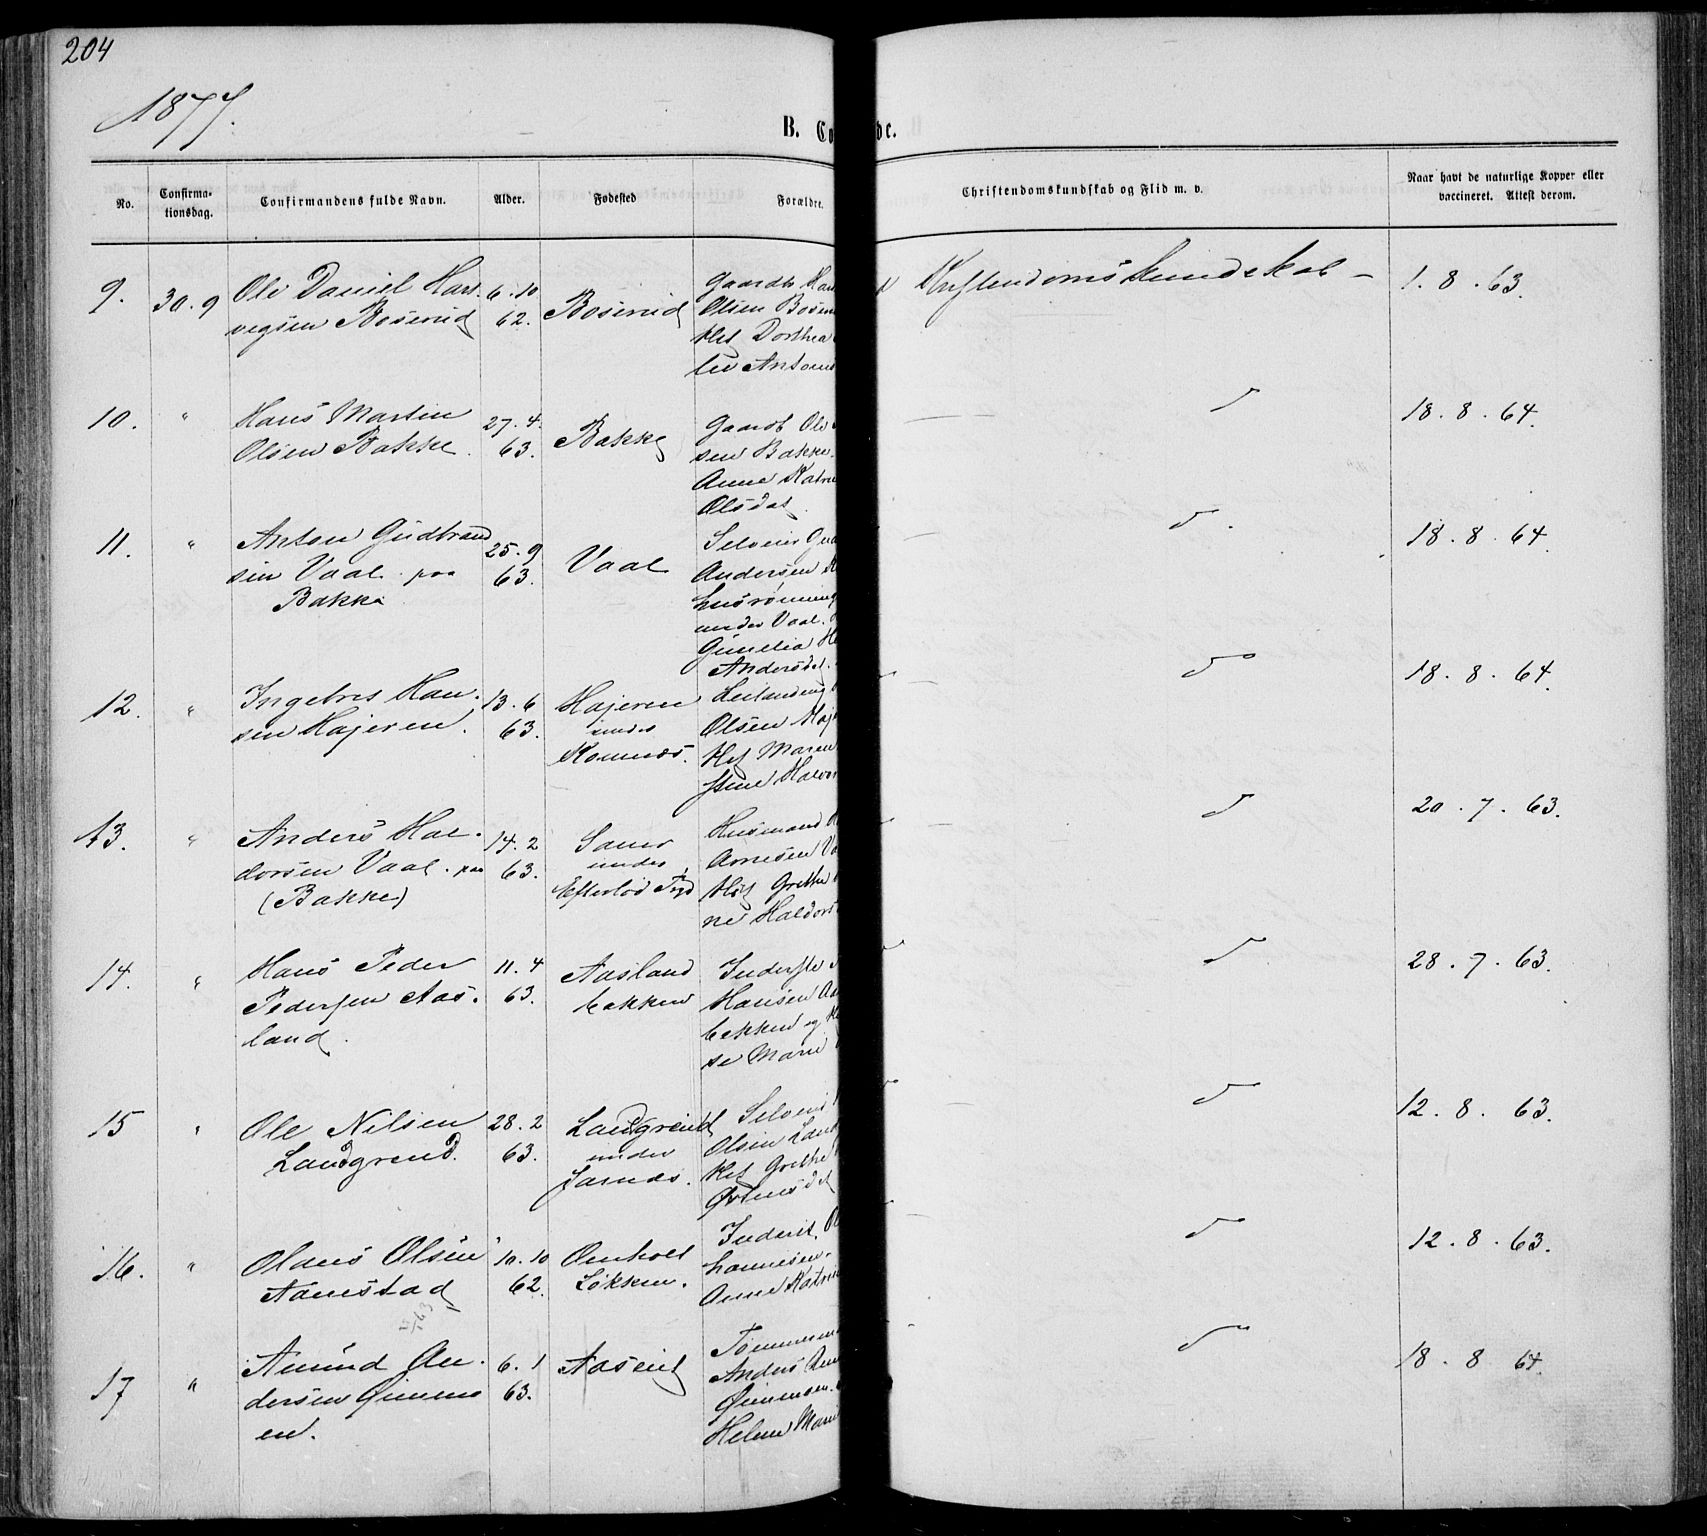 204
1877.
B. Co
de.
No.
Confirma-
tionsdag.
Confirmandens fulde Navn.
Alder.
Fødested
Forældre.
Christendomskundskab og Flid m. v.
Naar havt de naturlige Kopper eller
vaccineret. Attest derom.
9.
30.9
Ole Daniel Hart-
vigsen Boserud
6.10
62.
Boserud
Gaardb
Olsen Bosem
Dorthea
Kristendomskundskab -
1.8.63.
10.
"
Hans Martin
Olsen Bakke.
27.4.
63.
Bakke
Gaardb Ole
sen Bakke.
Anne Katri
Olsdat.
d
18.8.64.
11.
"
Anton Gudbrand
sen Vaal paa
Bakke
25.9
63.
Vaal
Selveier Gud
Andersen
under Vaal.
Andersdat.
d.
18.8.64.
12.
"
Ingebret Han-
sen Hajeren.
13.6
63.
Hajeren
under
Komnæs.
Leilænding
Olsen Haje
Maren
stine Halvor
d
18.8.64.
13.
"
Anders Hal-
dorsen Vaal paa
(Bakke)
14.2
63.
under
Efterlod
Husmand
Arnesen Va
Grethe
ne Haldors
d
20.7.63.
14.
"
Hans Peder
Pedersen Aas-
land.
11.4
63.
Aasland
bakken
Inderste
Hansen Aa
bakken og
se Marie
d
28.7.63.
15
"
Ole Nilsen
Landgrend.
28.2
63.
Landgrend
under
Jarnæs.
Selveier
Olsen Land
Grethe
Østensdat
d
12.8.63.
16.
"
Olaus Olsen
Aamstad
10.10
62.
Omholt
Løkken.
Inderst. O
hannesen.
Anne Katrin
d
12.8.63.
17
"
Amund An-
dersen Gunnes
en.
6.1
63.
Aaserud
Tømmerm
Anders Am
Helene Mari
d
18.8 64.